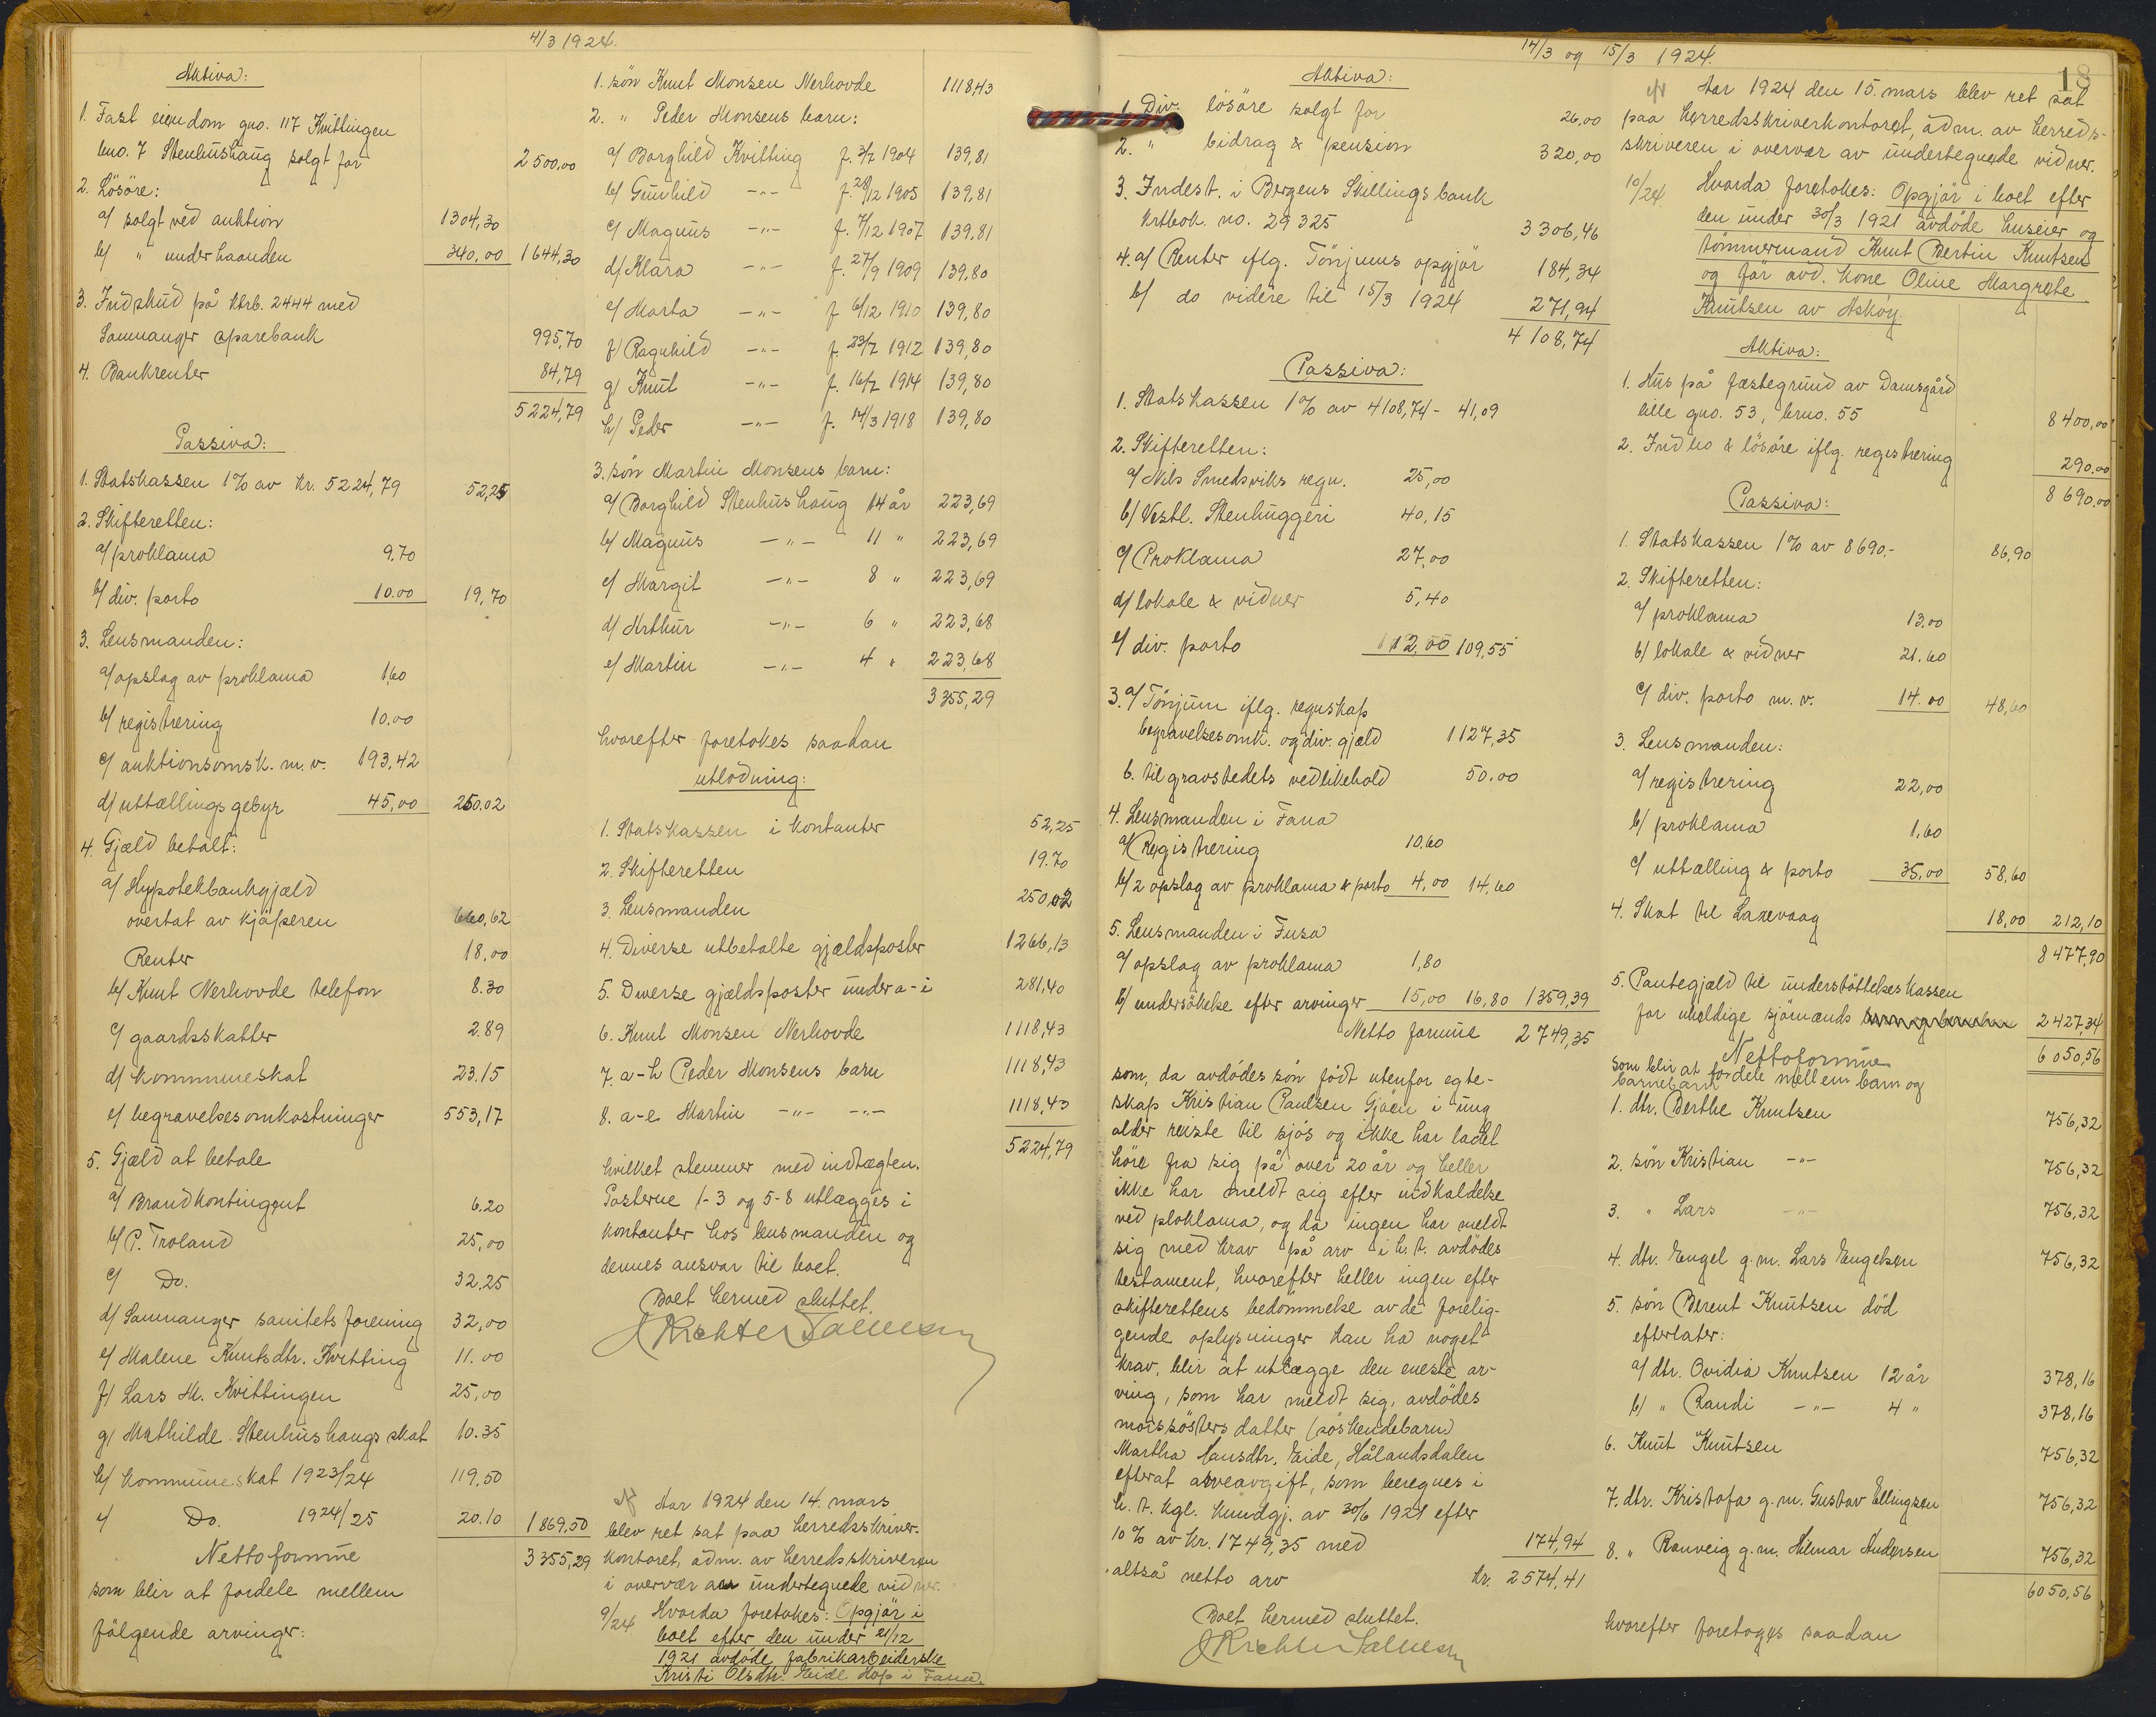 4/3 1924.
Aktiva:
1. Fast eiendom gno. 117 Kvittingen
bno. 7 Stenhushaug solgt for 2500,00
2. Lösöre:
a/ solgt ved auktion 1304,30
b/ " under haanden 340,00 1644,30
3. Indskud på ktrb. 2444 med
Samnanger sparebank 995,70
4. Bankrenter 84,79
5224,79
Passiva:
1. Statskassen 1% av kr. 5224,79 52,25
2. Skifteretten:
a/ proklama 9.70
b/ div. porto 10.00 19,70
3. Lensmanden:
a/ opslag av proklama 1,60
b/ registrering 10.00
c/ auktionsomsk. m.v. 193,42
d/ uttællingsgebyr 45,00 250.02
4. Gjæld betalt:
a/ Hypotekbankgjæld
overtat av kjöperen 660,62
Renter 18,00
b/ Knut Nerhovde telefon 8.30
c/ gaardsskatter 2.89
d/ kommuneskat 23.15
e/ begravelsesomkostninger 553,17
5. Gjæld at betale
a/ Brandkontingent 6.20
b/ P. Troland 25,00
c/ Do. 32,25
d/ Samnanger sanitetsforening 32,00
e/ Malene Knutsdtr. Kvitting 11.00
f/ Lars M. Kvittingen 25,00
g/ Mathilde Stenhushaugs skat 10.35
h/ kommuneskat 1923/24 119,50
i/ Do. 1924/25 20.10 1869.50
Nettoformue 3355,29
som blir at fordele mellem
fölgende arvinger:
1. sön Knut Monsen Nerhovde 1118,43
2. " Peder Monsens barn:
a/ Borghild Kvitting f. 3/7 1904 139,81
b/ Gunhild -"- f. 28/12 1905 139,81
c/ Magnus -"- f. 7/12 1907 139,81
d/ Klara -"- f. 27/9 1909 139,80
e/ Marta -"- f 6/12 1910 139,80
f/ Ragnhild -"- f. 23/7 1912 139,80
g/ Knut -"- f. 16/7 1914 139,80
h/ Peder -"- f. 14/3 1918 139,80
3. sön Martin Monsens barn:
a/ Borghild Stenhushaug 14 år 223,69
b/ Magnus -"- 11 " 223,69
c/ Margit -"- 8 " 223,69
d/ Arthur -"- 6 " 223,68
e/ Martin -"- 4 " 223,68
3355,29
hvorefter foretokes saadan
utlodning:
1. Statskassen i kontanter 52,25
2. Skifteretten 19.70
3. Lensmanden 250,02
4. Diverse utbetalte gjældsposter 1266,13
5. Diverse gjældsposter under a-i 281,40
6. Knut Monsen Nerhovde 1118,43
7. a-h Peder Monsens barn 1118,43
8. a-e Martin -"- -"- 1118,43
5224,79
hvilket stemmer med indtægten.
Posterne 1-3 og 5-8 utlægges i
kontanter hos lensmanden og
dennes ansvar til boet.
Boet hermed sluttet.
Aar 1924 den 14. mars
blev ret sat paa herredsskriver-
kontoret, adm. av herredsskriveren
i overvær av undertegnede vidner.
9/24. Hvorda foretokes: Opgjör i
boet efter den under 21/12
1921 avdöde fabrikarbeiderske
Kristi Olsdtr. Eide Hop i Fana.
14/3 og 15/3 1924.
18
Aktiva:
1. Div. lösöre solgt for 26,00
2. " bidrag & pension 320,00
3. Indest. i Bergens Skillingsbank
ktrbok. no. 29325 3306,46
4. a/ Renter iflg. Tönjums opgjör 184,34
b/ do videre til 15/3 1924 271,94
4108,74
Passiva:
1. Statskassen 1% av 4108,74 - 41,09
2. Skifteretten:
a/ Nils Smedsviks regn. 25,00
b/ Vestl. Stenhuggeri 40,15
c/ Proklama 27,00
d/ lokale & vidner 5,40
e/ div. porto 12,00 109,55
3. a/ Tönjum iflg. regnskap
begravelsesomk. og div. gjæld 1127,35
b. til gravstedets vedlikehold 50.00
4. Lensmanden i Fana
a/ Registrering 10,60
b/ 2 opslag av proklama & porto 4,00 14,60
5. Lensmanden i Fusa
a/ opslag av proklama 1,80
b/ undersökelse efter arvinger 15,00 16,80 1359,39
Netto formue 2749,35
som, da avdödes sön födt utenfor egte-
skap Kristian Paulsen Gjöen i ung
alder reiste til sjös og ikke har ladet
höre fra sig på over 20 år og heller
ikke har meldt sig efter indkaldelse
ved ploklama, og da ingen har meldt
sig med krav på arv i h.t. avdödes
testament, hvorefter heller ingen efter
skifterettens bedömmelse av de forelig-
gende oplysninger kan ha noget
krav, blir at utlægge den eneste ar-
ving, som har meldt sig, avdödes
morssösters datter (söskendebarn)
Martha Hansdtr. Eide, Hålandsdalen
efterat arveavgift, som beregnes i
h.t. kgl. kundgj. av 30/6 1921 efter
10% av kr. 1749,35 med 174,94
altså netto arv kr. 2574,41
Boet hermed sluttet.
Aar 1924 den 15. mars blev ret sat
paa herredsskriverkontoret, adm. av herreds-
skriveren i overvær av undertegnede vidner.
10/24. Hvorda foretokes: Opgjör i boet efter
den under 30/3 1921 avdöde huseier og
tömmermand Knut Bertin Knutsen
og för avd. kone Oline Margrete
Knutsen av Asköy.
Aktiva:
1. Hus på fæstegrund av Damsgård
lille gno. 53, bruo. 55 8400,00
2. Indbo & lösöre iflg. registrering 290.00
8690,00
Passiva:
1. Statskassen 1% av 8690.- 86,90
2. Skifteretten:
a/ proklama 13,00
b/ lokale & vidner 21.60
c/ div. porto m.v. 14.00 48,60
3. Lensmanden:
a/ registrering 22,00
b/ proklama 1,60
c/ uttælling & porto 35,00 58,60
4. Skat til Laxevaag 18,00 212,10
8477,90
5. Pantegjæld til understöttelseskassen
for uheldige sjömænds 2427,34
Nettoformue 6050,56
som blir at fordele mellem barn og
barnebarn
1. dtr. Berthe Knutsen 756,32
2. sön Kristian -"- 756,32
3. " Lars -"- 756,32
4. dtr. Engel g.m. Lars Engelsen 756,32
5. sön Berent Knutsen död
efterlater:
a/ dtr. Ovidia Knutsen 12 år 378,16
b/ " Randi -"- 4 " 378,16
6. Knut Knutsen 756,32
7. dtr. Kristofa g.m. Gustav Ellingsen 756,32
8. " Ranveig g.m. Hilmar Andersen 756,32
6050,56
hvorefter foretoges saadan